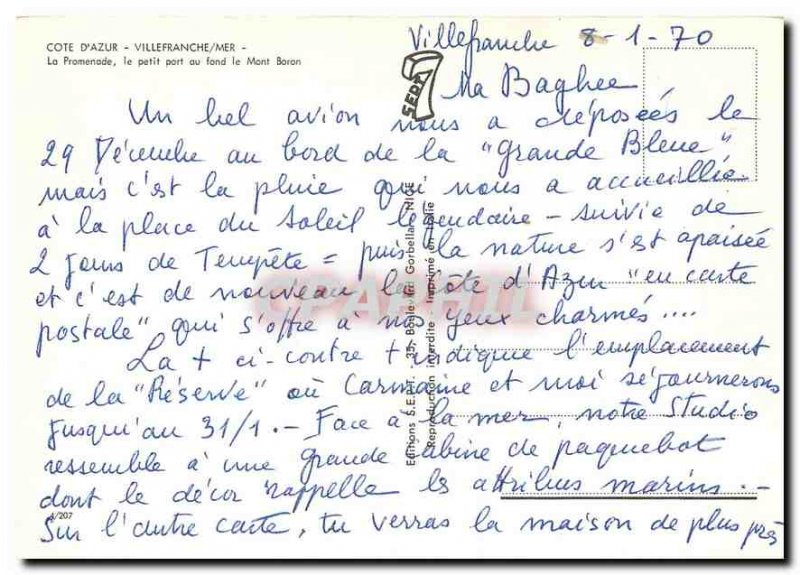 COTE D'AZUR - VILLEFRANCHE/MER -
La Promenade, le petit port au fond le Mont Boron
Villefranche 8-1-70
Ma Baghee
Un bel avion nous a déposées le
29 Décembre au bord de la "Grande Bleue"
mais c'est la pluie qui nous a accueillie
à la place du soleil légendaire - suivie de
2 jours de Tempête = puis la nature s'est apaisée
et c'est de nouveau la Côte d'Azur "en carte
postale" qui s'offre à nos yeux charmés....
La + ci-contre + indique l'emplacement
de la "Réserve" où Carmaine et moi séjournerons
jusqu'au 31/1.- Face à la mer, notre Studio
ressemble à une grande cabine de paquebot
dont le décor rappelle les attributs marins.-
4/207
Sur l'autre carte, tu verras la maison de plus près
SEPT
Editions S.E.P.T. - 35, Boulevard Gorbella - NICE
Reproduction interdite - Imprimé en Italie
CPAPHIL